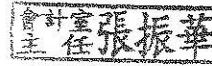 會計室
主任張振華